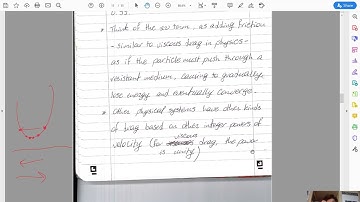 0.55.
* Think of the sv term, as adding friction
- similar to viscous drag in physics -
as if the particle must push through a
resistant medium, causing to gradually
lose energy and eventually converge.
* Other physical systems have other kinds
of drag based on other integer powers of
viscous
velocity (for drag, the power
is unity)